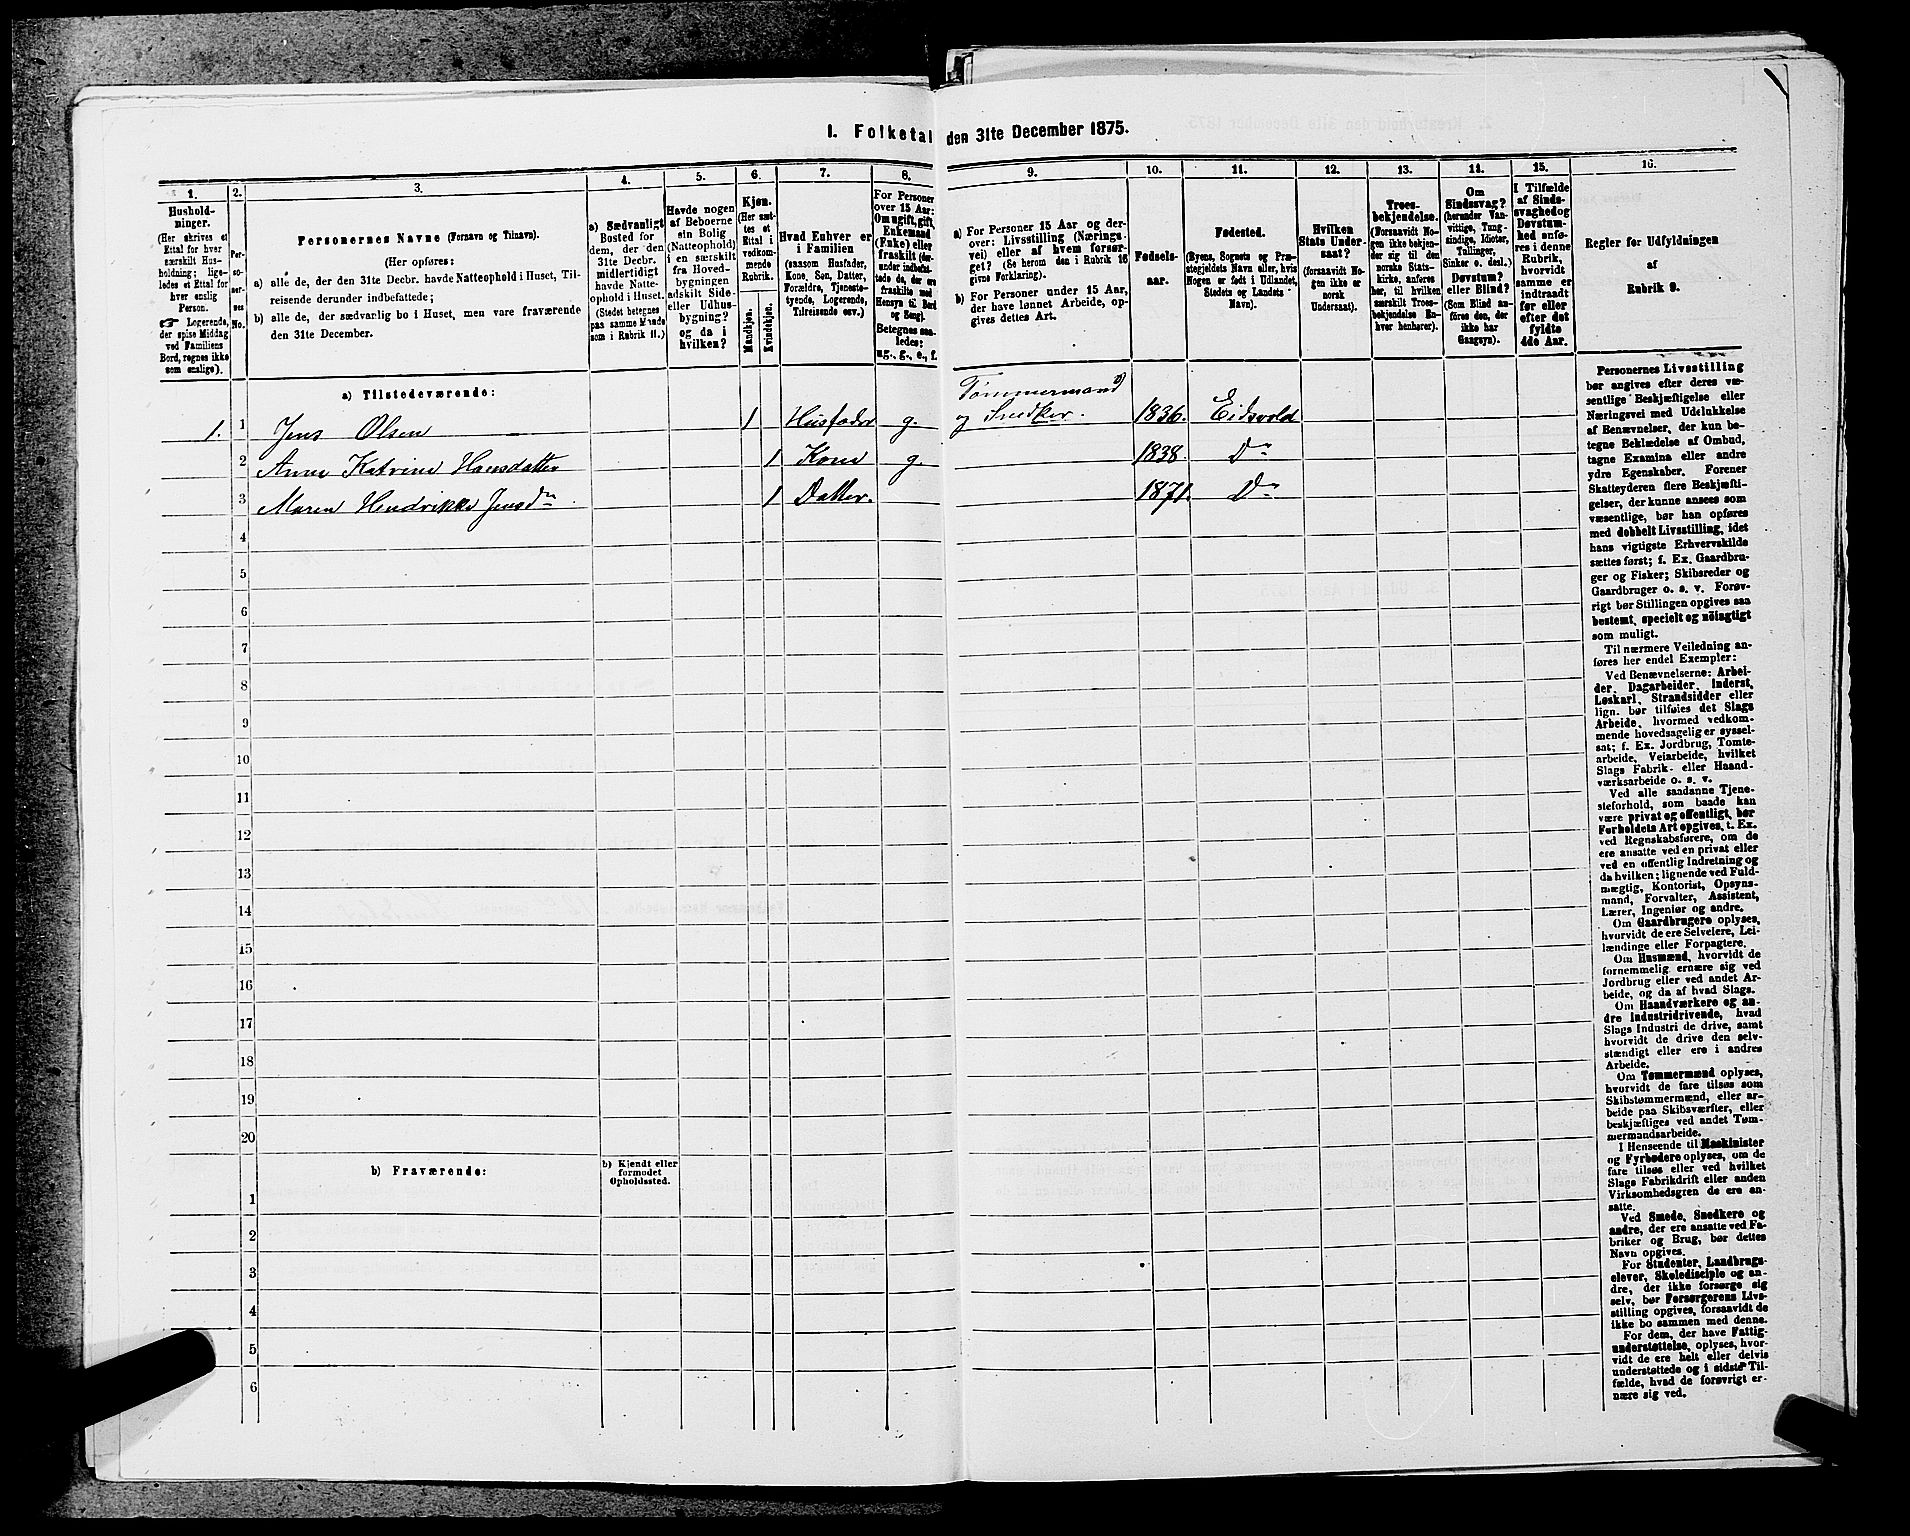 I. Folketal den 31te December 1875.
1. 2. 3. 4. 5. 6. 7. 8. 9. 10. 11. 12. 13. 14. 15. 16.
Hushold-
ninger.
(Her skrives et
Ettal for hver
særskilt Hus-
holdning; lige-
ledes et Ettal for
hver enslig
Person.
☞ Logerende,
der spise Middag
ved Familiens
Bord, regnes ikke
som enslige).
Per-
so-
ner-
nes
No.
Personernes Navne (Fornavn og Tilnavn).
(Her opføres:
a) alle de, der den 31te Decbr. havde Natteophold i Huset, Til-
reisende derunder indbefattede;
b) alle de, der sædvanlig bo i Huset, men vare fraværende
den 31te December.
a) Sædvanligt
Bosted for
dem, der den
31te Decbr.
midlertidigt
havde Natte-
ophold i Huset.
(Stedet betegnes
paa samme Maade
som i Rubrik 11.)
Havde nogen
af Beboerne
ein Bolig
(Natteophold)
i en særskilt
fra Hoved-
bygningen
adskilt Side-
eller Udhus-
bygning?
og da i
hvilken?
Kjøn.
(Her sæt-
tes et
Ettal i
vedkom-
mende
Rubrik.
Mandkjøn.
Kvindekjøn.
Hvad Enhver er
i Familien
(saasom Husfader,
Kone, Søn, Datter,
Forældre, Tjeneste-
tyende, Logerende,
Tilreisende osv.)
For Personer
over 15 Aar:
Om ugift, gift,
Enkemand
(Enke) eller
fraskilt (der-
under indbefat-
tede de, der ere
fraskilte med
Hensyn til Bord
og Seng).
Betegnes saa-
ledes:
ug., g., e., f.
a) For Personer 15 Aar og der-
over: Livsstilling (Nærings-
vei) eller af hvem forsør-
get? (Se herom den i Rubrik 16
givne Forklaring).
b) For Personer under 15 Aar,
der have lønnet Arbeide, op-
gives dettes Art.
Fødsels-
aar.
Fødested.
(Byens, Sognets og Præ-
stegjeldets Navn eller, hvis
Nogen er født i Udlandet,
Stedets og Landets
Navn).
Hvilken
Stats Under-
saat?
(forsaavidt No-
gen ikke er
norsk
Undersaat).
Troes-
bekjendelse.
(Forsaavidt No-
gen ikke bekjen-
der sig til den
norske Stats-
kirke, anføres
her, til hvilken
særskilt Troes-
bekjendelse En-
hver henhører).
Om
Sindssvag?
(herunder Van-
vittige, Tung-
sindige, Idioter,
Tullinger,
Sinker o. desl.)
Døvstum?
eller Blind?
(Som Blind an-
føres den, der
ikke har
Gangsyn).
I Tilfælde
af Sinds-
svaghed og
Døvstum-
hed anfø-
res i denne
Rubrik,
hvorvidt
samme er
indtraadt
før eller
efter det
fyldte
4de Aar.
Regler for Udfyldningen
af
Rubrik 9.
a) Tilstedeværende:
1. 1 Jens Olsen 1 Husfader g. Tømmermand
og Snedker. 1836. Eidsvold
2 Anne Katrine Hansdatter 1 Kone g. 1838. Do
3 Maren Hendrikke Jensdr 1 Datter. 1871. Do
4
5
6
7
8
9
10
11
12
13
14
15
16
17
18
19
20
b) Fraværende:
b) Kjendt eller
formodet
Opholdssted.
1
2
3
4
5
6
Personernes Livsstilling
bør angives efter deres væ-
sentlige Beskjæftigelse eller
Næringsvei med Udelukkelse
af Benævnelser, der kun be-
tegne Beklædelse af Ombud,
tagne Examina eller andre
ydre Egenskaber. Forener
Skatteyderen flere Beskjæfti-
gelser, der kunne ansees som
væsentlige, bør han opføres
med dobbelt Livsstilling, idet
hans vigtigste Erhvervskilde
sættes først; f. Ex. Gaardbru-
ger og Fisker; Skibsreder og
Gaardbruger o. s. v. Forøv-
rigt bør Stillingen opgives saa
bestemt, specielt og nöiagtigt
som muligt.
Til nærmere Veiledning an-
føres her endel Exempler:
Ved Benævnelserne: Arbei-
der, Dagarbeider, Inderst,
Løskarl, Strandsidder eller
lign. bør tilføies det Slags
Arbeide, hvormed vedkom-
mende hovedsagelig er syssel-
sat; f. Ex. Jordbrug, Tomte-
arbeide, Veiarbeide, hvilket
Slags Fabrik- eller Haand-
værksarbeide o. s. v.
Ved alle saadanne Tjene-
steforhold, som baade kan
være privat og offentligt, bør
Forholdets Art opgives, t. Ex.
ved Regnskabsførere, om de
ere ansatte ved en privat eller
ved en offentlig Indretning og
da hvilken; lignende ved Fuld-
mægtig, Kontorist, Opsyns-
mand, Forvalter, Assistent,
Lærer, Ingeniør og andre.
Om Gaardbrugere oplyses,
hvorvidt de ere Selveiere, Lei-
lændinge eller Forpagtere.
Om Husmænd, hvorvidt de
fornemmelig ernære sig ved
Jordbrug eller ved andet Ar-
beide, og da af hvad Slags.
Om Haandværkere og an-
dre Industridrivende, hvad
Slags Industri de drive, samt
hvorvidt de drive den selv-
stændigt eller ere i andres
Arbeide.
Om Tømmermænd oplyses,
hvorvidt de fare tilsøs som
Skibstømmermænd, eller ar-
beide paa Skibsværfter, eller
beskjæftiges ved andet Tøm-
mermandsarbeide.
I Henseende til Maskinister
og Fyrbødere oplyses, om de
fare tilsøs eller ved hvilket
Slags Fabrikdrift eller anden
Virksomhedsgren de ere an-
satte.
Ved Smede, Snedkere og
andre, der ere ansatte ved Fa-
briker og Brug, bør dettes
Navn opgives.
For Studenter, Landbrugs-
elever, Skoledisciple og an-
dre, der ikke forsørge sig
selv, bør Forsørgerens Livs-
stilling opgives, forsaavidt de
ikke bo sammen med denne.
For dem, der have Fattig-
understøttelse, oplyses, hvor-
vidt de ere helt eller delvis
understøttede og i sidste Til-
fælde, hvad de forøvrigt er-
nære sig ved.